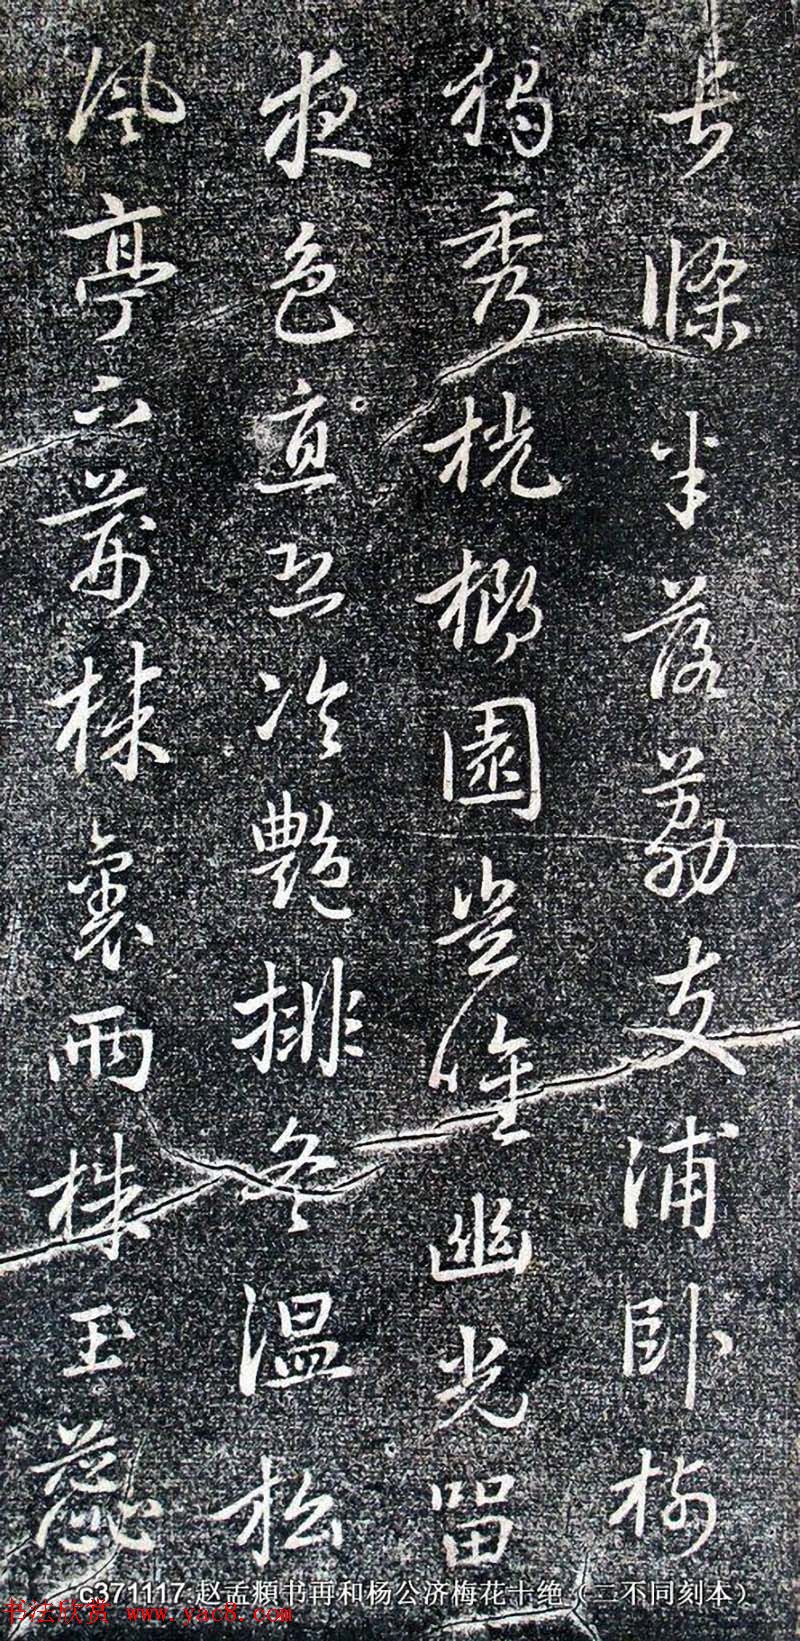 長條半落荔支浦卧梅
獨秀桄榔園豈唯幽光留
夜色直恐冷艷排冬温松
風亭下荊棘裏兩株玉蕊
c371117 赵孟頫书再和杨公济梅花十绝（二不同刻本）
书法欣赏 www.yac8.com